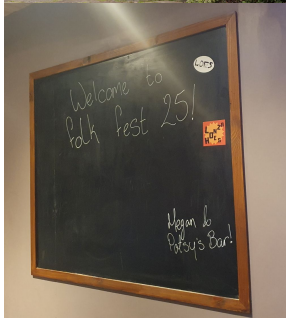 Welcome to
folk fest 25!
Megan &
Patsy's Bar!